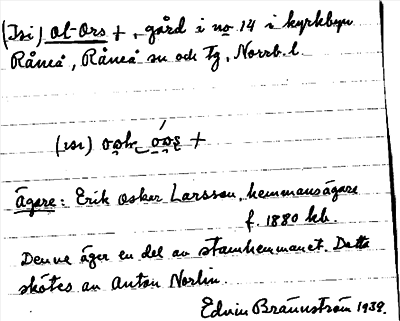 (Isi) Ol-Ors +, gård i no 14 i kyrkbyn
Råneå, Råneå sn och tg, Norrb. l.
(isi)
Ägare: Erik Oskar Larsson, hemmansägare
f. 1880 kb.
Denne äger en del av stamhemmanet. Detta
skötes av Anton Norlin.
Edvin Brännström 1938.